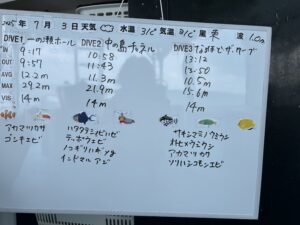 2025年 7月 3日 天気 水温 31℃ 気温 31℃ 風 東 波 1.0m
DIVE1 一の瀬ホール DIVE2 中の島チャネル DIVE3 なかもとザ・ケーブ
IN 9:17 10:58 13:12
OUT 9:57 11:43 13:50
AVG 12.2m 11.3m 10.5m
MAX 29.2m 21.9m 15.6m
VIS 14m 14m 14m
アカマツカサ ハタタテシビハゼ サキシマミノウミウシ
ゴシキエビ テッポウエビ オトヒメウミウシ
ノコギリハギyg アカマツカサ
インドマルアジ ソリハシコモンエビ